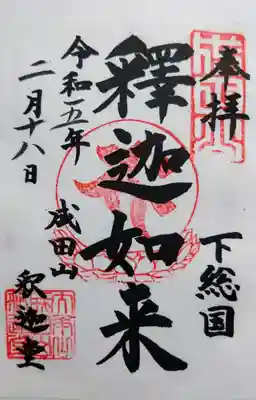 奉拝
下総国
釋迦如来
成田山
釈迦堂
令和五年
二月十八日